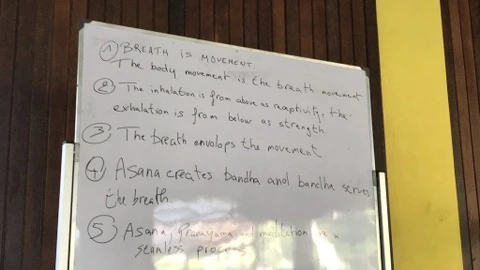 ① BREATH IS MOVEMENT
The body movement is the breath movement
② The inhalation is from above as receptivity, the
exhalation is from below as strength
③ The breath envolops the movement
④ Asana creates bandha and bandha serves
the breath
⑤ Asana, Pranayama and meditation are a
seamless process